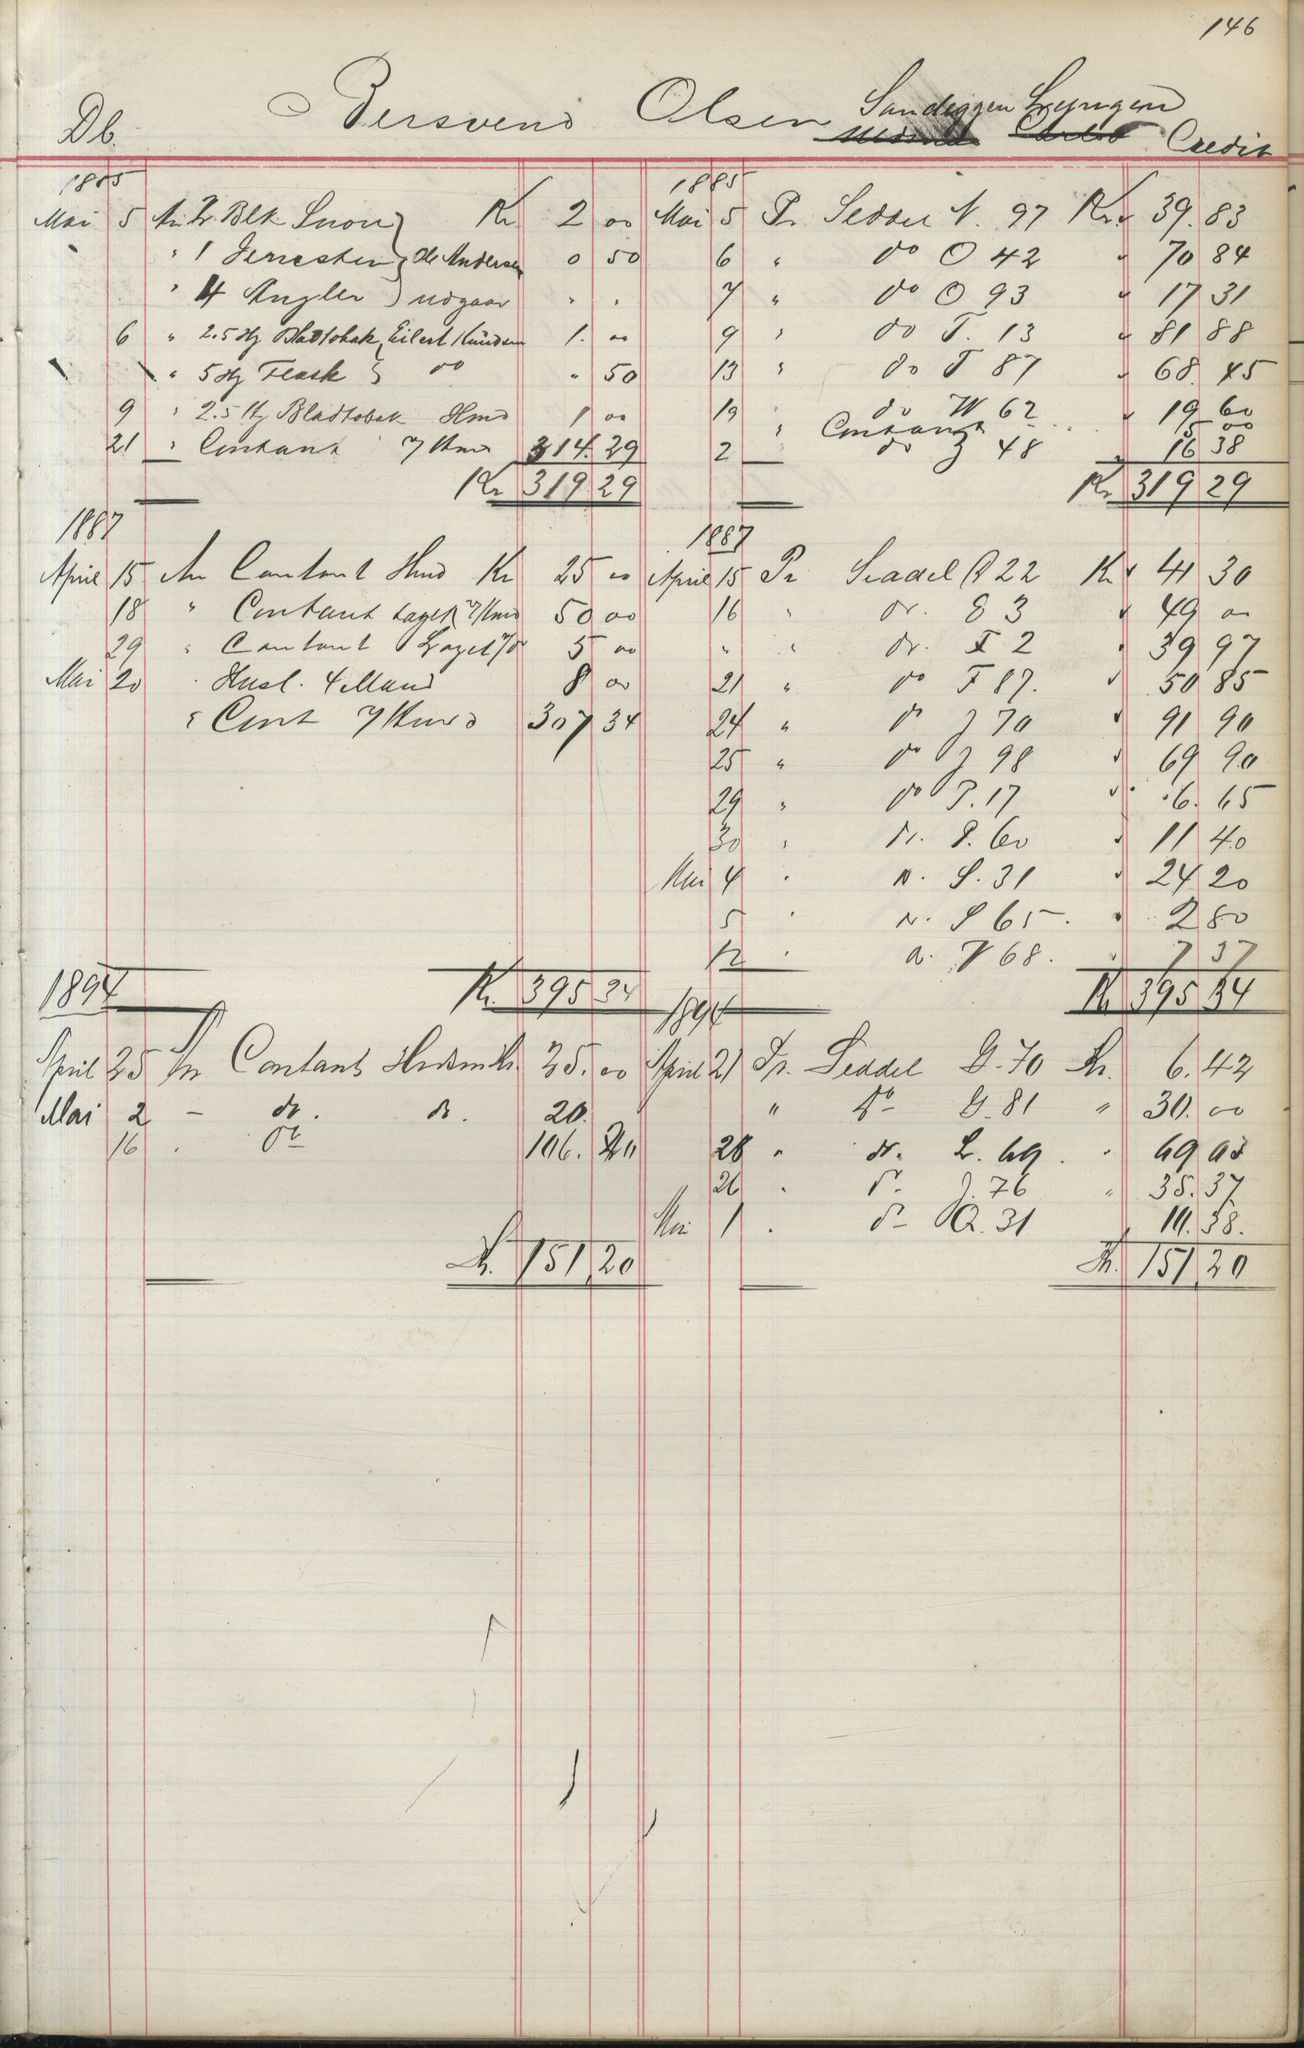 146
Db. Bersvend Olsen Sandeggen Lyngen Credit
1885
Mai 5 An 2 Blk Snor Kr 2 00
" 1 Jernsten Ole Andersen 0 50
" 4 Angler udgaar " "
6 " 2.5 Hg Bladtobak Eilert Knudsen 1. 00
" 5 Hg Flesk do " 50
9 " 2.5 Hg Bladtobak Hmd 1 00
21 " Contant 314. 29
Kr 319 29
1885
Mai 5 Pr Seddel N. 97 Kr. 39. 83
6 " do O 42 " 70 84
7 " do O 93 " 17 31
9 " do T. 13 " 81 88
13 " do T 87 " 68. 45
19 " do W 62 " 19 60
" Contant 5 00
2 do Z 48 " 16 38
Kr 319 29
1887
April 15 An Contant Hmd Kr 25 00
18 " Contant Laget 50 00
29 " Contant Laget 5 00
Mai 20 " Husl. 4 Mand 8 00
" Cont 307 34
Kr. 395 34
1887
April 15 Pr Seddel A 22 Kr 41 30
16 " do. E 3 49 00
" " do. I 2 39 97
21 " do F 87. 50 85
24 " do J 70 91 90
25 " do J 98 69 90
29 " do P. 17 6. 65
30 " do. P. 60 11 40
Mai 4 " do. S. 31 24 20
5 " do. S 65. 2 80
12 " do. V 68. 7 37
Kr 395 34
1894
April 25 An Contant Kr. 25. 00
Mai 2 - do. do. 20.
16 " do 106. 20
Kr. 151 20
1894
April 21 Pr. Seddel G. 70 Kr. 6. 42
" do G. 81 " 30. 00
28 " do. L. 69. " 69 03
26 " do J. 76 " 35. 37
Mai 1 " do Q. 31 10. 38.
Kr. 151 20